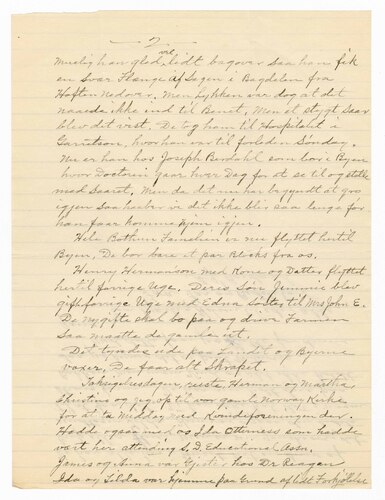 2
vel
Muelig han gled, lidt bagover saa han fik
en svar Flænge af Sagen i Bagdelen fra
Hoften nedover. Men Lykken var dog at det
naaede ikke ind til Benet. Men et stygt Saar
blev det vist. De tog ham til Hospitalet i
Garretson, hvor han var til forleden Søndag.
Nu er han hos Joseph Berdahl som bor i Byen
hvor Doctoren gaar hver Dag for at se til og stelle
med Saaret. Men da det nu har begyndt at gro
igjen saa haaber vi det ikke blir saa lenge før
han faar komme hjem igjen.
Hele Bothum Familien er nu flyttet hertil
Byen. De bor bare et par Blocks fra os.
Henry Hermanson med Kone og Datter flyttet
hertil forrige Uge. Deres Søn Jimmie blev
gift forrige Uge med Edna Søster til Mrs John E.
De nygifte skal bo paa og drive Farmen
saa maatte de gamle ut.
Det tyndes ude paa Landet og Byerne
voxer. De faar alt Skrapet.
Taksigelsesdagen reiste Herman og Martha,
Christine og jeg op til vor gamle Norway Kirke
for at ta Middag med Kvindeforeningen der.
Hadde ogsaa med os Ida Otterness som hadde
vært her attending S.D. Educational Assn.
James og Anna var Gjester hos Dr Reagan
Ida og Tilda var hjemme paa Grund af lidt Forkjølelse